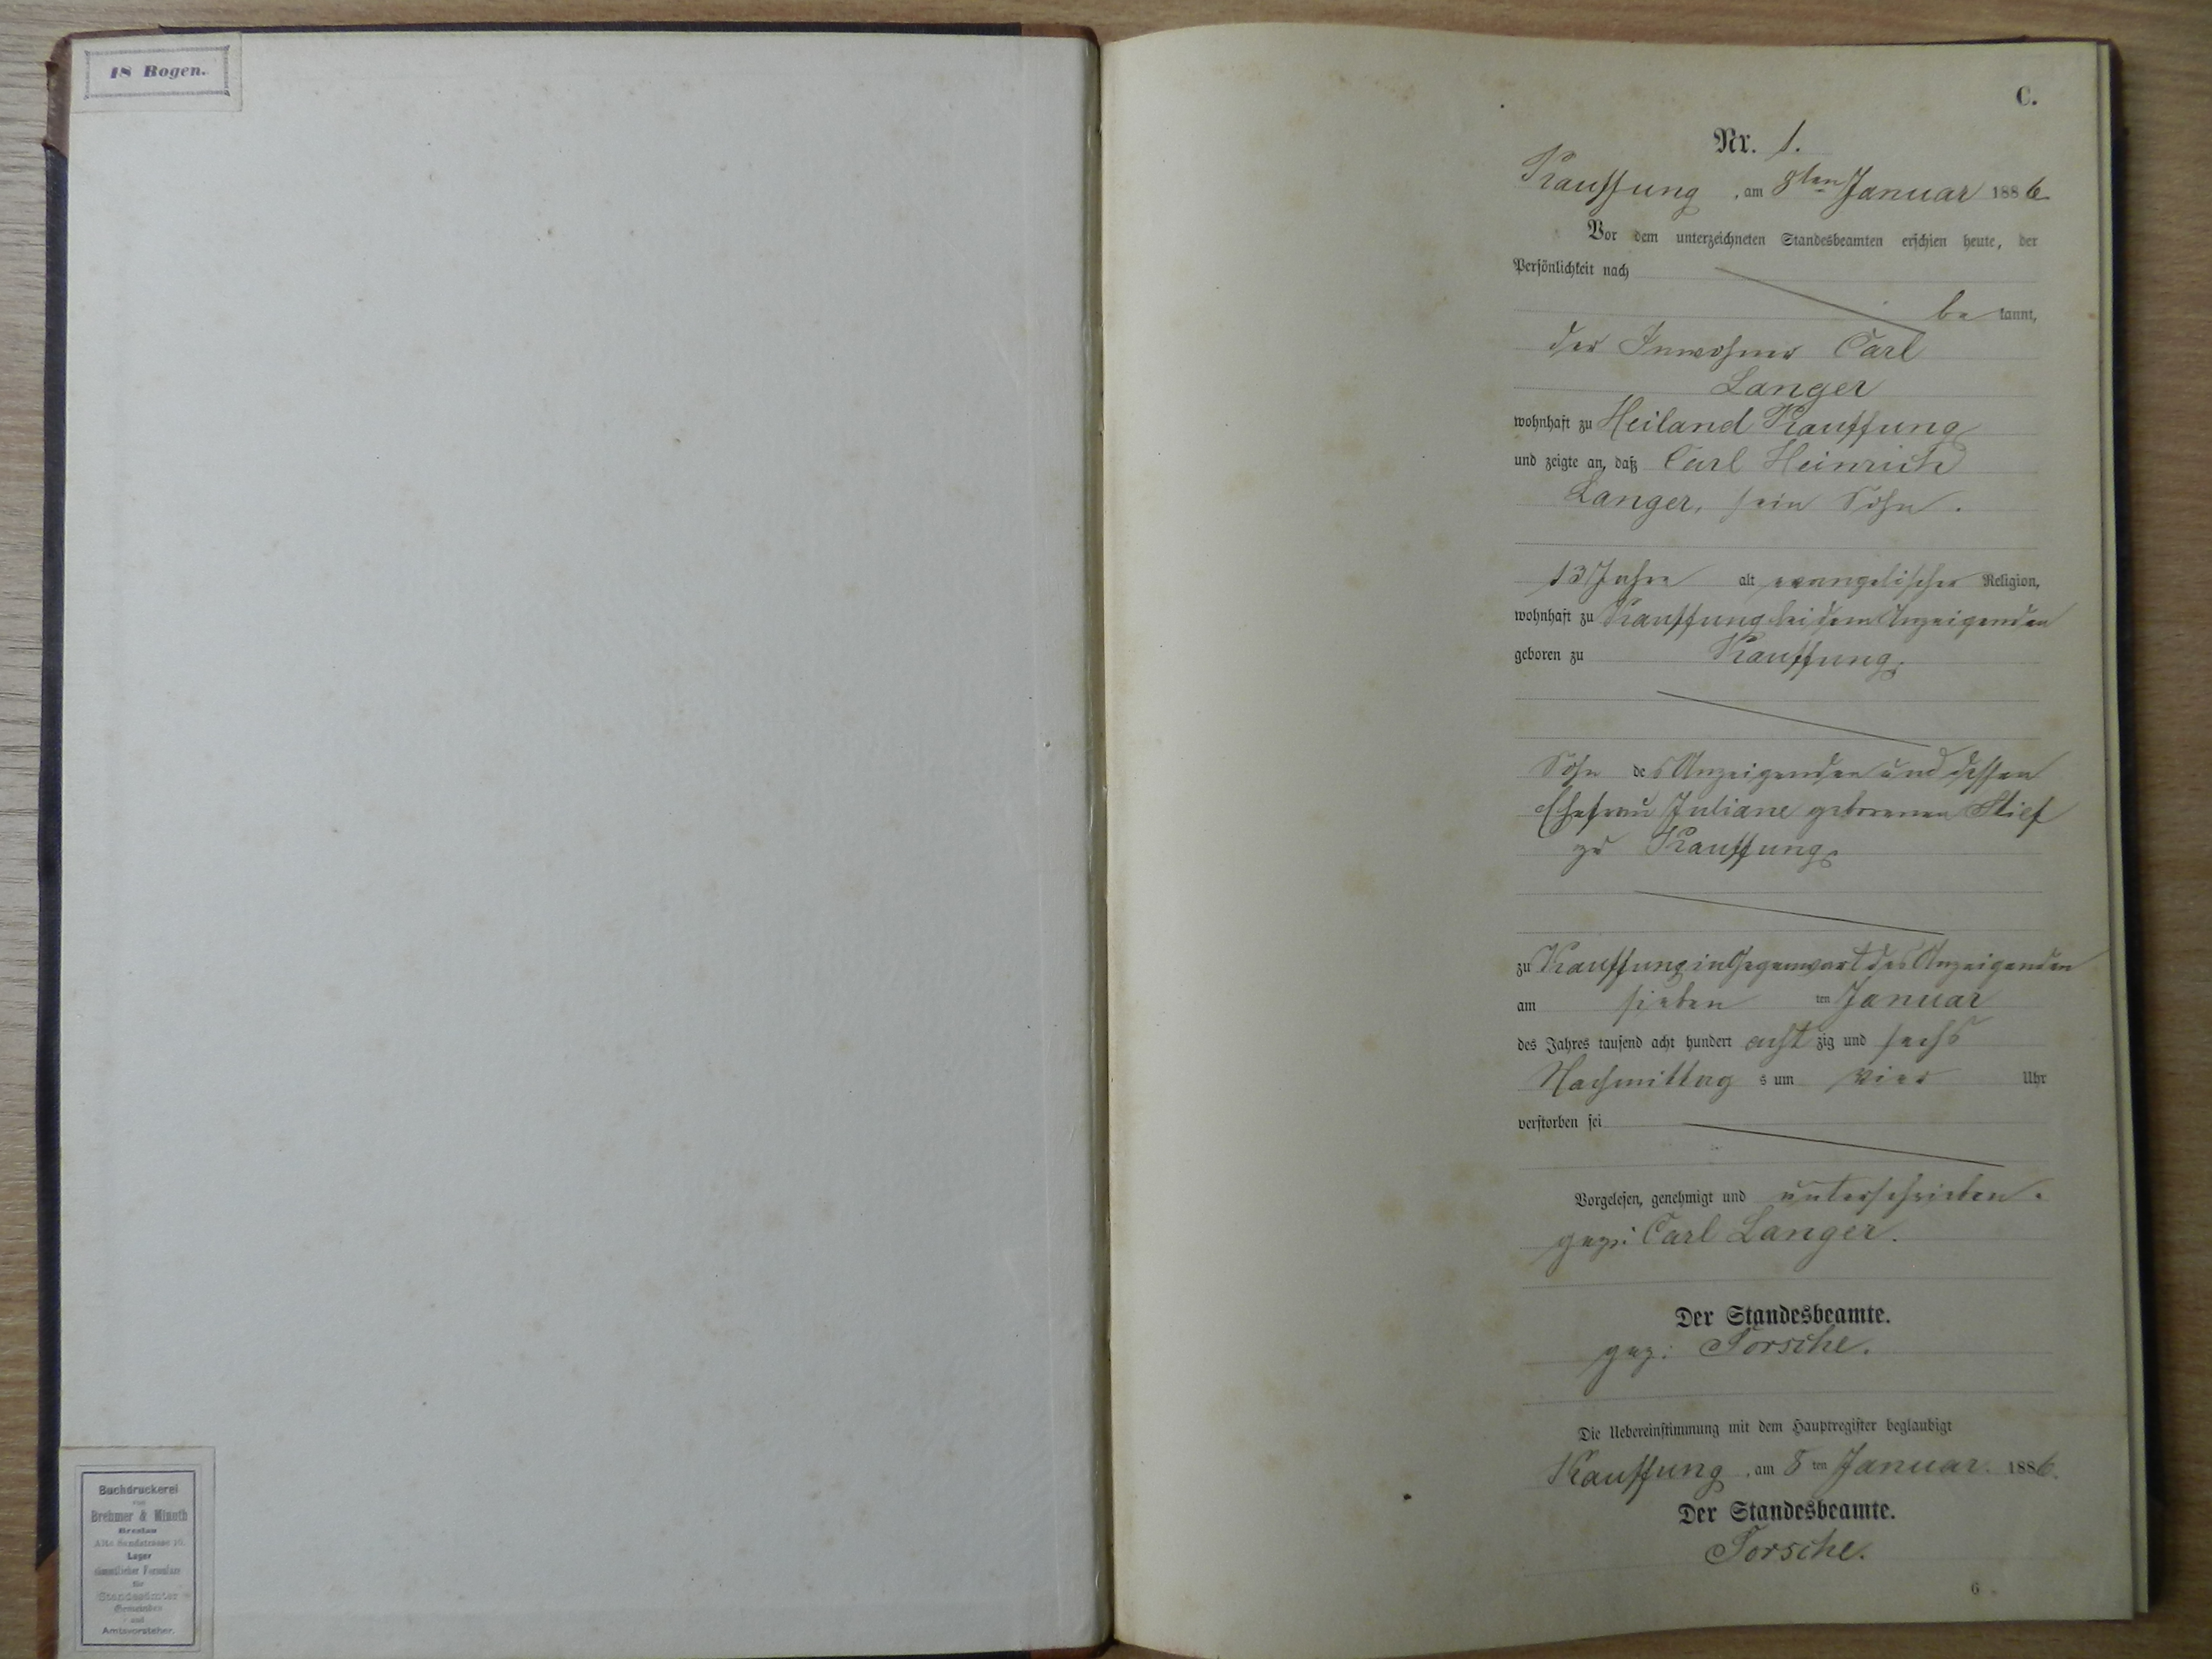 18 Bogen.
C.
Nr. 1.
Kauffung, am 8ten Januar 1886
Vor dem unterzeichneten Standesbeamten erschien heute, der
Persönlichkeit nach
be kannt,
der Inwohner Carl
Langer
wohnhaft zu Heiland Kauffung
und zeigte an, daß Carl Heinrich
Langer, sein Sohn.
13 Jahre alt evangelischer Religion,
wohnhaft zu Kauffung bei dem Anzeigenden
geboren zu Kauffung,
Sohn des Anzeigenden und dessen
Ehefrau Juliane geborenen Stief
zu Kauffung,
zu Kauffung in Gegenwart des Anzeigenden
am sieben ten Januar
des Jahres tausend acht hundert acht zig und sechs
Nachmittag s um vier Uhr
verstorben sei
Vorgelesen, genehmigt und unterschrieben.
gez: Carl Langer.
Der Standesbeamte.
gez: Torsche.
Die Uebereinstimmung mit dem Hauptregister beglaubigt
Kauffung, am 8 ten Januar. 1886.
Der Standesbeamte.
Torsche.
6
Buchdruckerei
von
Brehmer & Minuth
Breslau
Alte Sandstrasse 10.
Lager
sämmtlicher Formulare
für
Standesämter
Gemeinden
und
Amtsvorsteher.